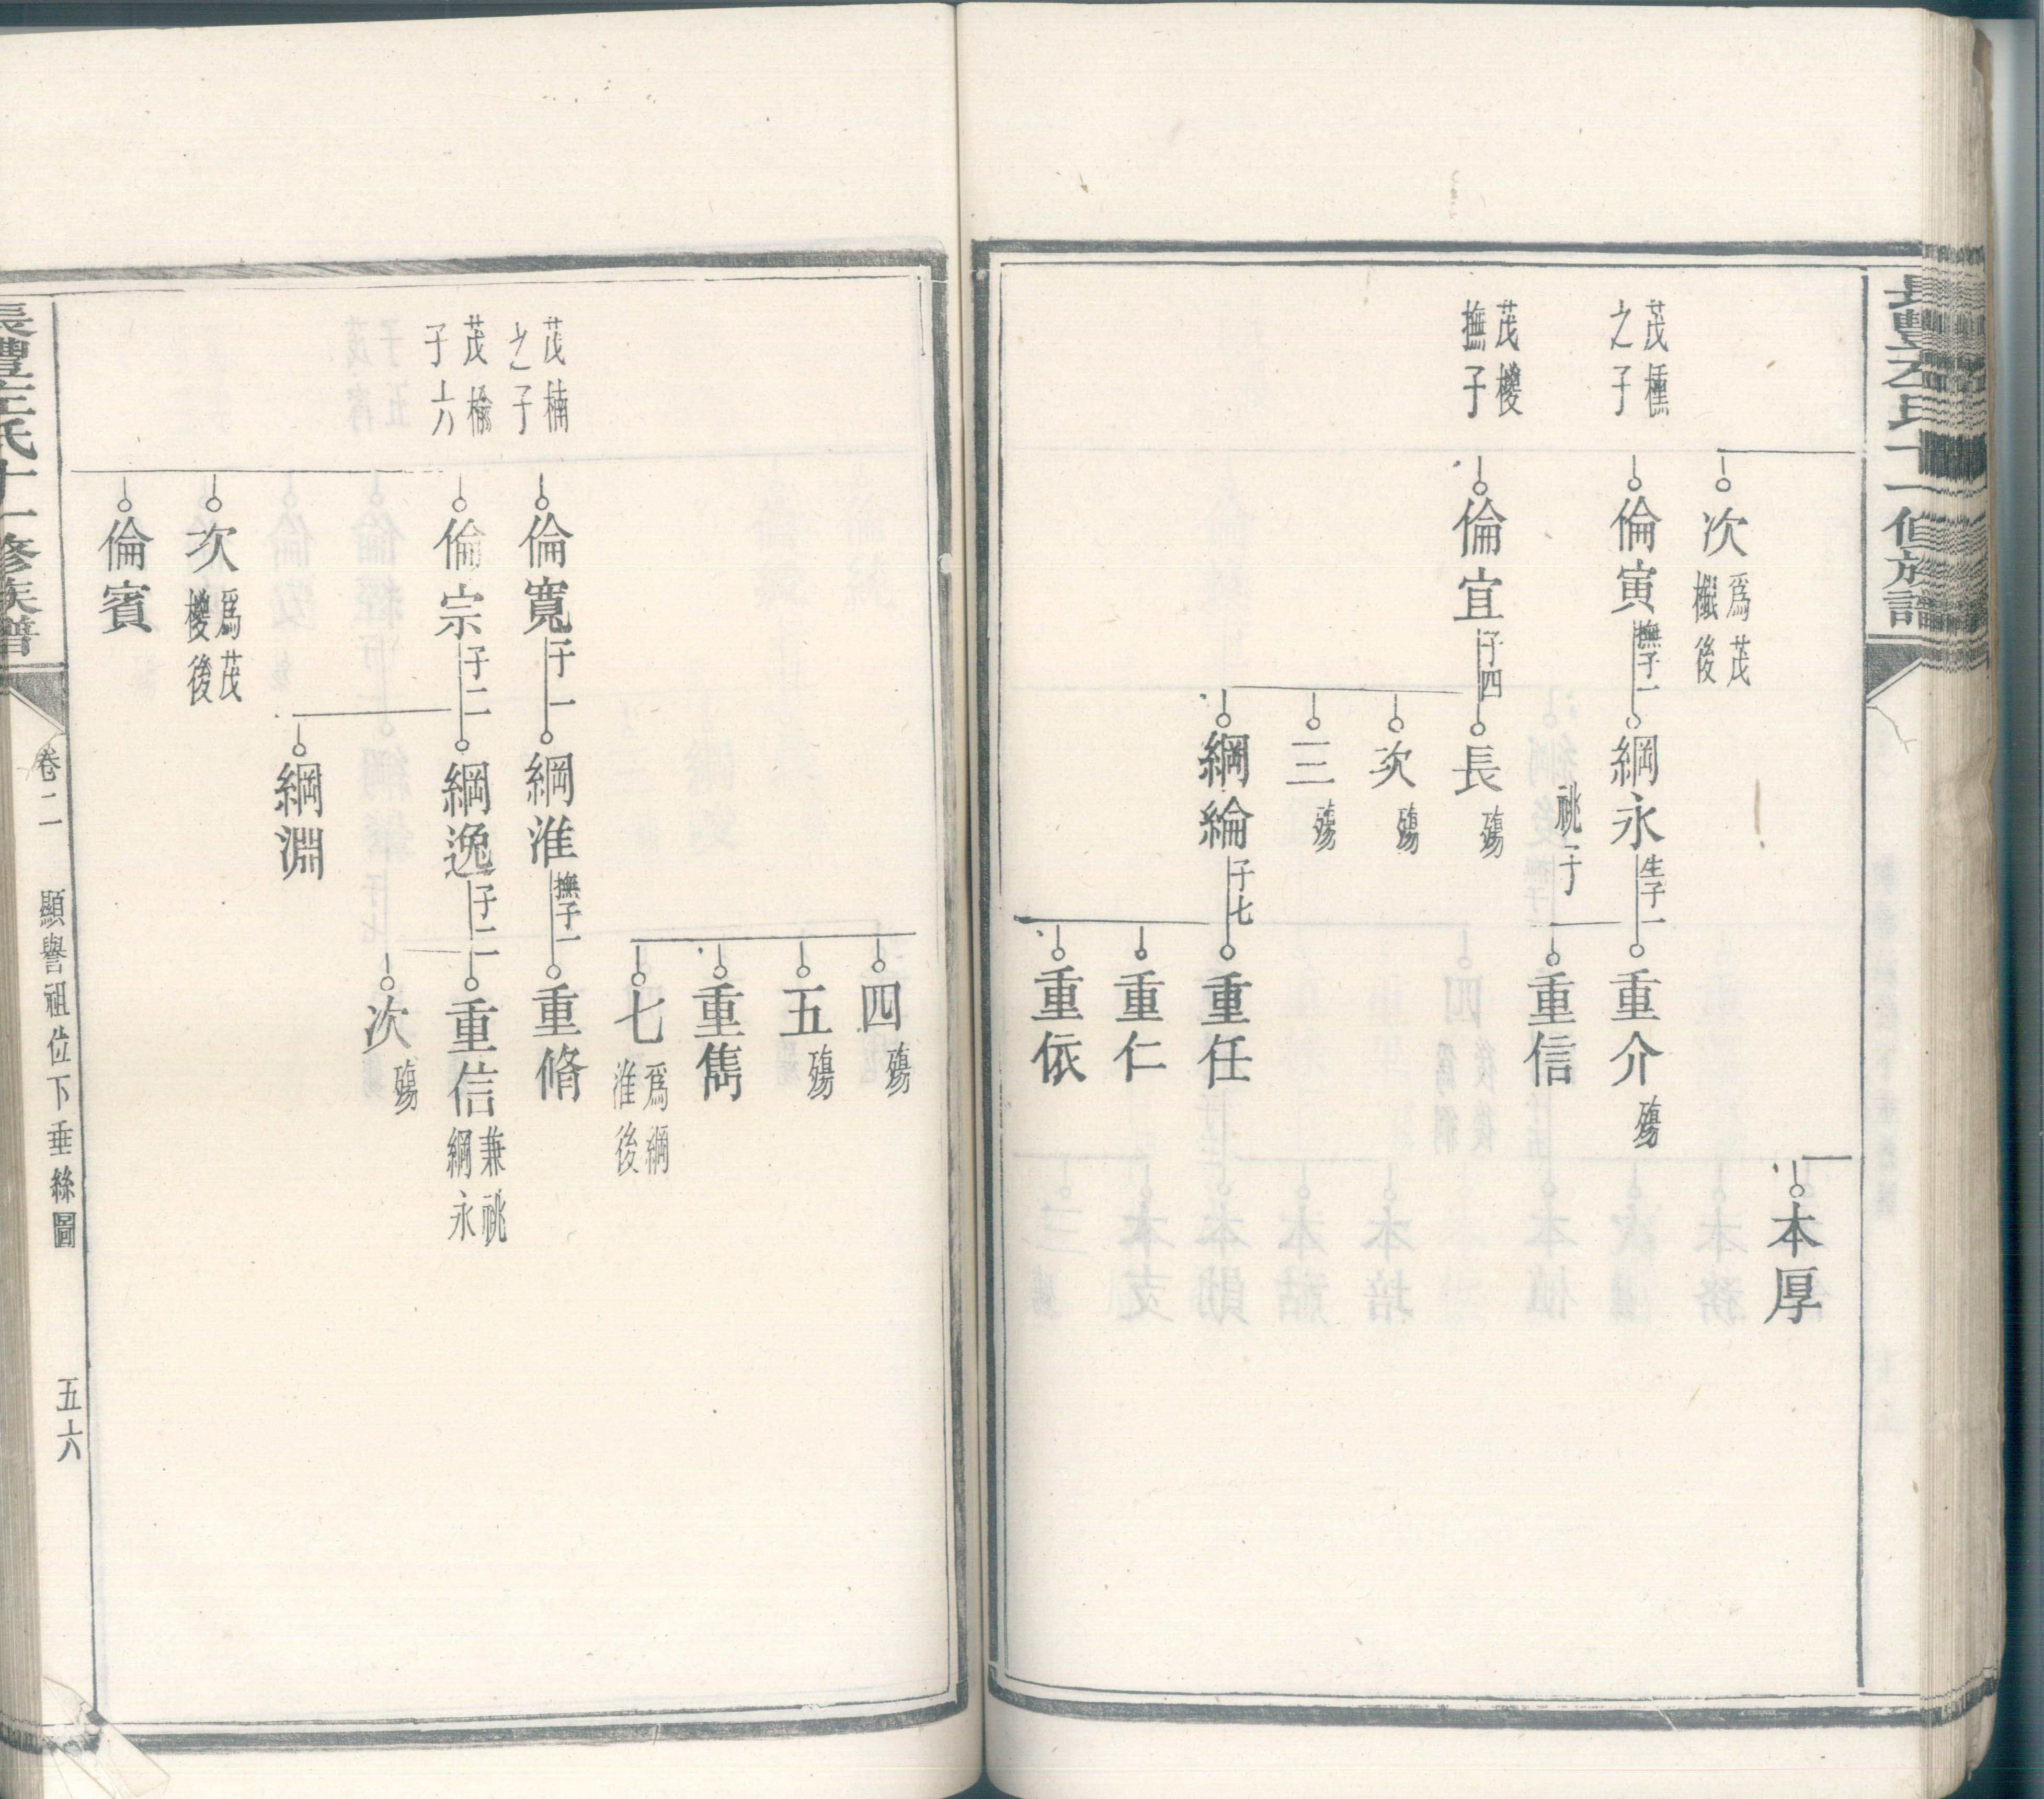 次
爲茂
後
茂櫄
之子
倫寅
撫子一
綱永
生子一
祧子
重介
殤
重信
本厚
茂㮨
撫子
倫宜
子四
長
殤
次
殤
三
殤
綱綸
子七
重任
重仁
重依
四
殤
五
殤
重雋
七
爲綱
淮後
茂楠
之子
倫寬
子一
綱淮
撫子一
重脩
茂楡
子六
倫宗
子二
綱逸
子二
重信
兼祧
綱永
次
殤
綱淵
次
爲茂
㮨後
倫賓
氏十一修族譜
卷二
顯譽祖位下垂絲圖
五六